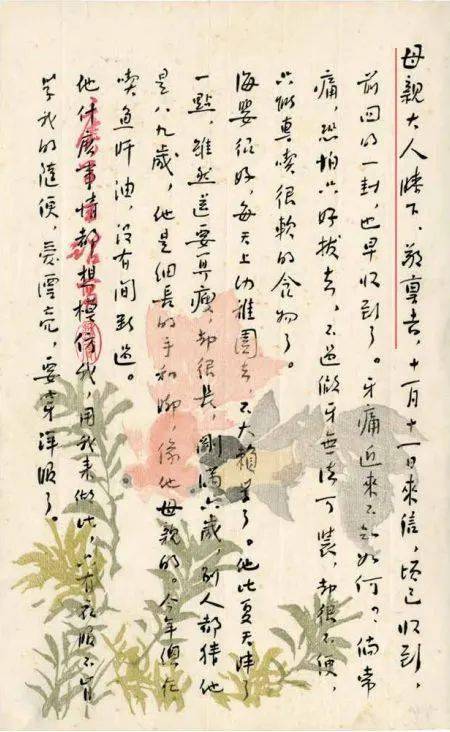 母親大人膝下,敬稟者,十一月十一日來信,頃已收到,
前回的一封,也早收到了。牙痛近來不知如何?倘常
痛,恐怕只好拔去,不過做牙無法可裝,却很不便,
只能專喫很軟的食物了。
海嬰很好,每天上幼稚園去,不大賴學了。他比夏天胖了
一點,雖然還要算瘦,却很長,剛滿六歲,別人都猜他
是八九歲,他是細長的手和脚,像他母親的。今年總在
喫魚肝油,沒有間斷過。
他什麽事情都想模仿我,用我來做比,只有衣服不肯
學我的隨便,愛漂亮,要穿洋服了。